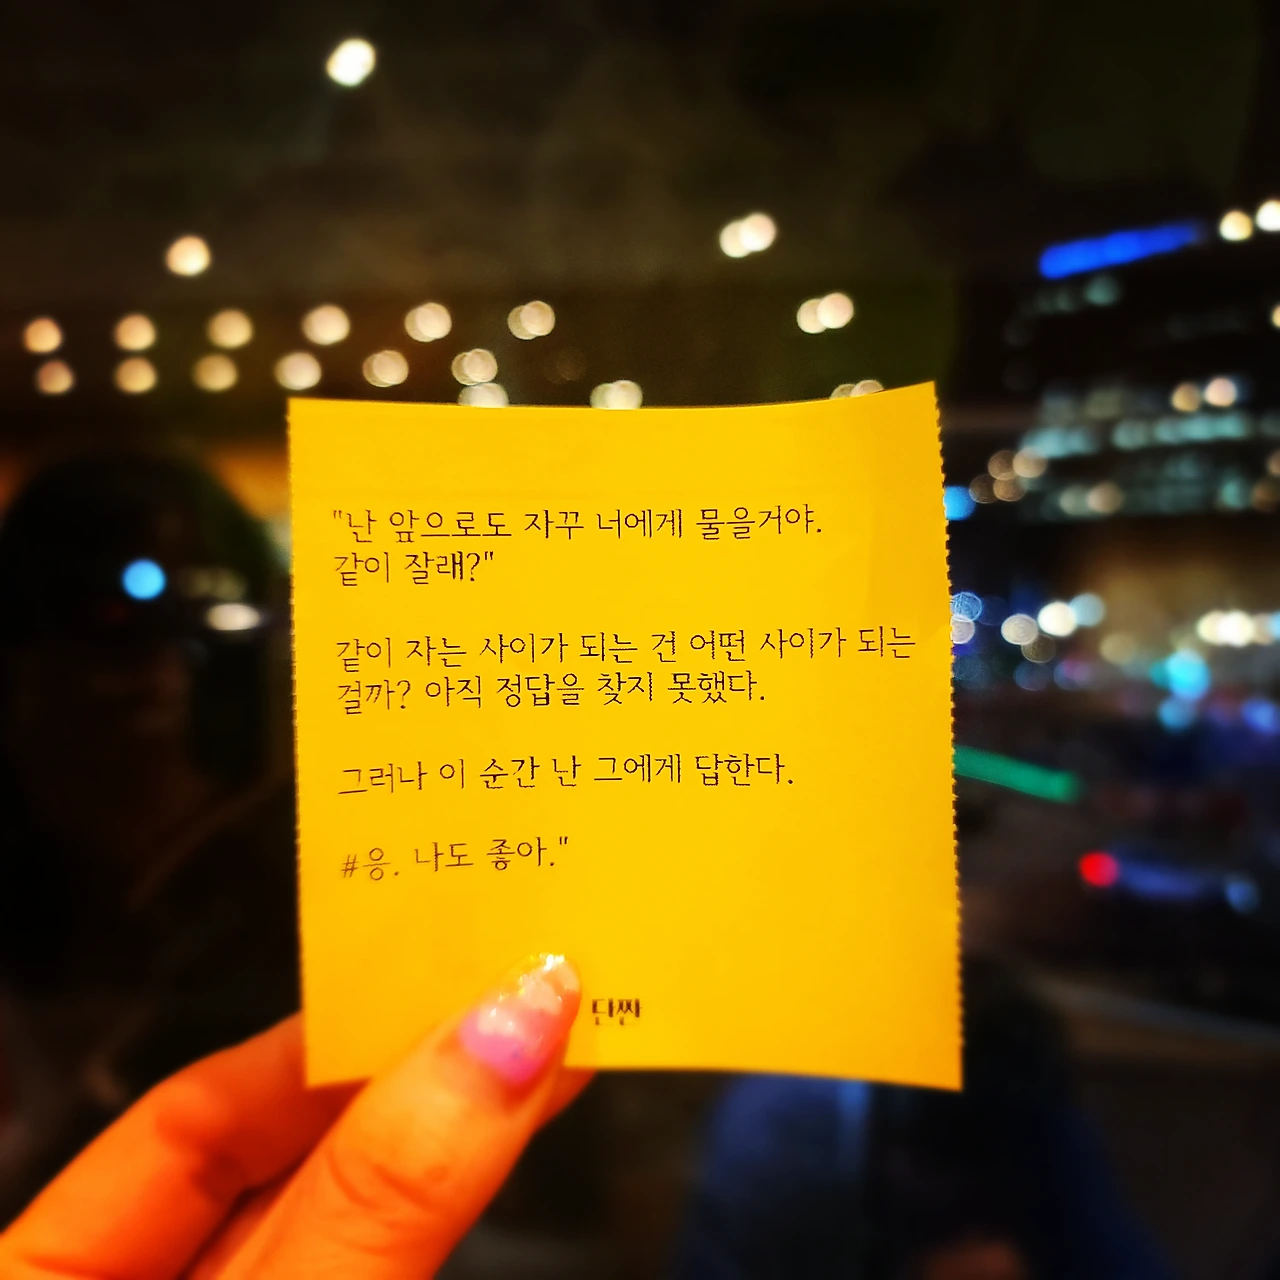 "난 앞으로도 자꾸 너에게 물을거야.
같이 잘래?"
같이 자는 사이가 되는 건 어떤 사이가 되는
걸까? 아직 정답을 찾지 못했다.
그러나 이 순간 난 그에게 답한다.
#응. 나도 좋아."
단짠